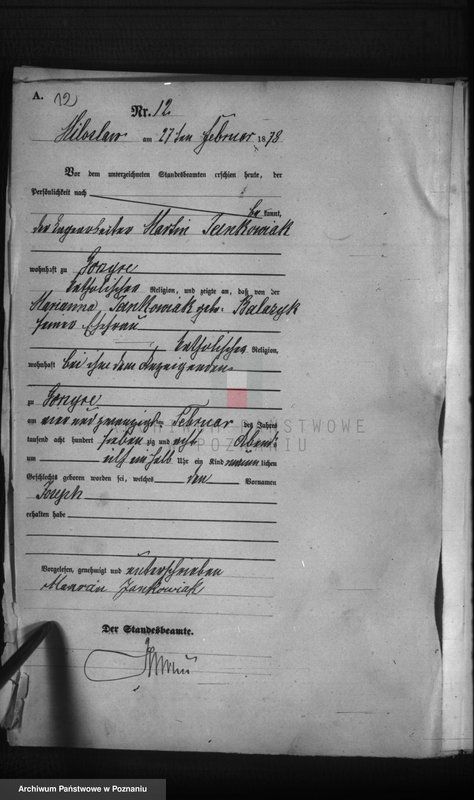 A. 12
Nr. 12
Miloslaw am 27 ten Februar 1878
Vor dem unterzeichneten Standesbeamten erschien heute, der
Persönlichkeit nach
be kannt,
der Tagearbeiter Martin Jankowiak
wohnhaft zu
katholischer Religion, und zeigte an, daß von der
Marianna Jankowiak geb.
seiner Ehefrau
katholischer Religion,
wohnhaft bei ihm dem Anzeigenden
zu
am Februar des Jahres
tausend acht hundert sieben zig und acht Abends
um Uhr ein Kind männ lichen
Geschlechts geboren worden sei, welches den Vornamen
Joseph
erhalten habe
Vorgelesen, genehmigt und unterschrieben
Marcin Jankowiak
Der Standesbeamte.
ARCHIWUM PAŃSTWOWE
W POZNANIU
Archiwum Państwowe w Poznaniu